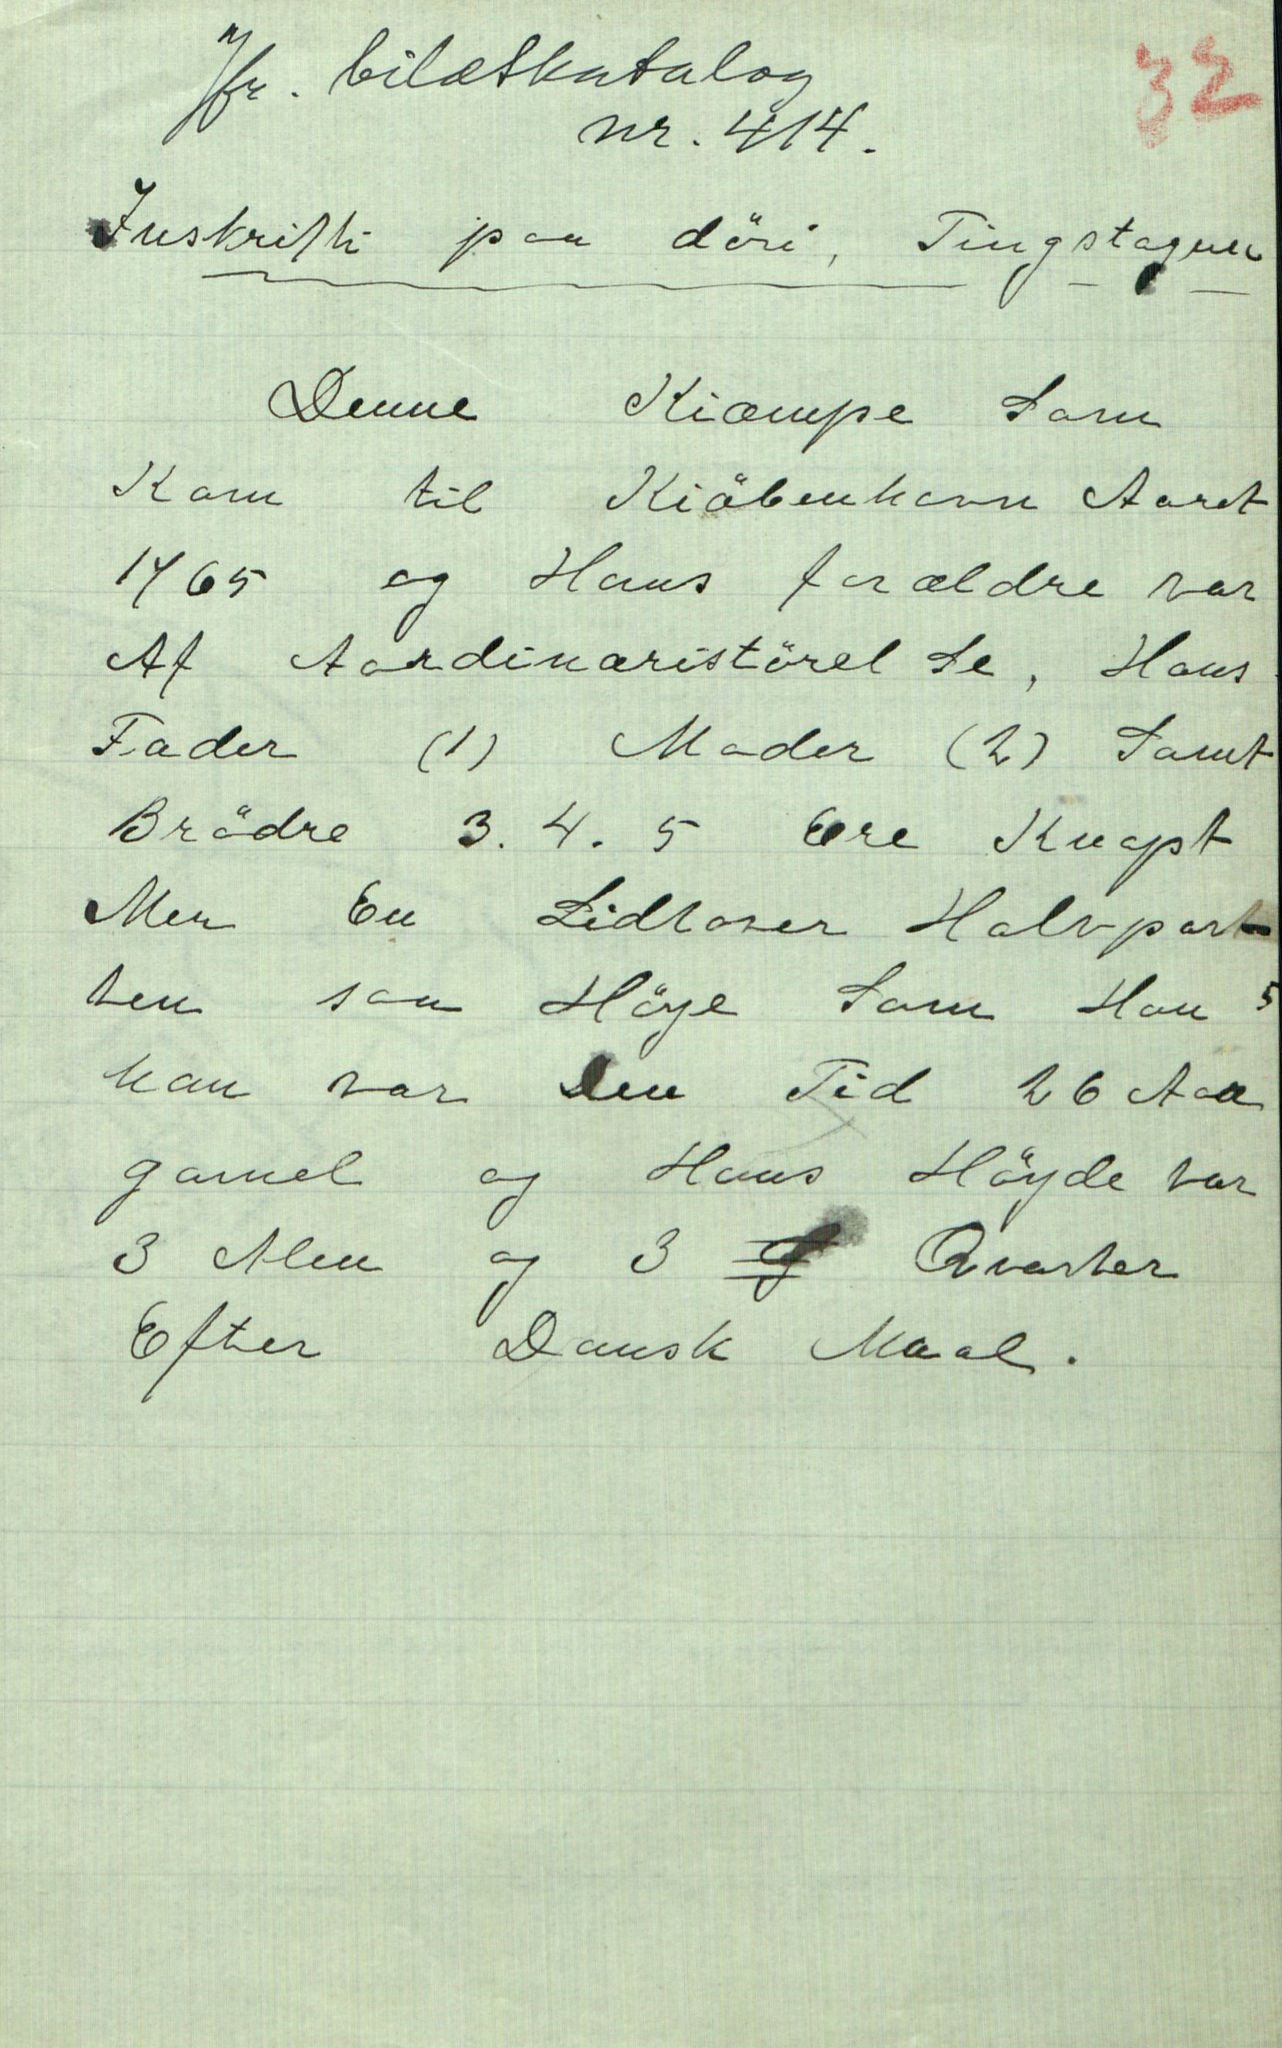 Jfr. biletkatalog
32
nr. 414.
Inskrifti paa döri, Tingstagun
Denne Kiæmpe Som
Kam til Kiöbenhavn Aaret
1765 og Hans forældre var
Af Aordinæristörel se, Hans
Fader (1) Moder (2) Samt
Brödre 3. 4. 5 Ere Knapt
Mer En Lidtover Halvpart
ten saa Höye Som Han
han var Den Tid 26 Aar
gamel og Hans Höyde var
3 Alen og 3 Qvarter
Efter Dansk Maal.